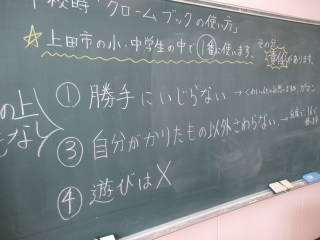 下校時 "クロームブックの使い方"
☆上田市の小・中学生の中で1番に使います。その分
責任があります。
の上
なし
① 勝手にいじらない →
③ 自分がかりたもの以外さわらない。→
④ 遊びは×